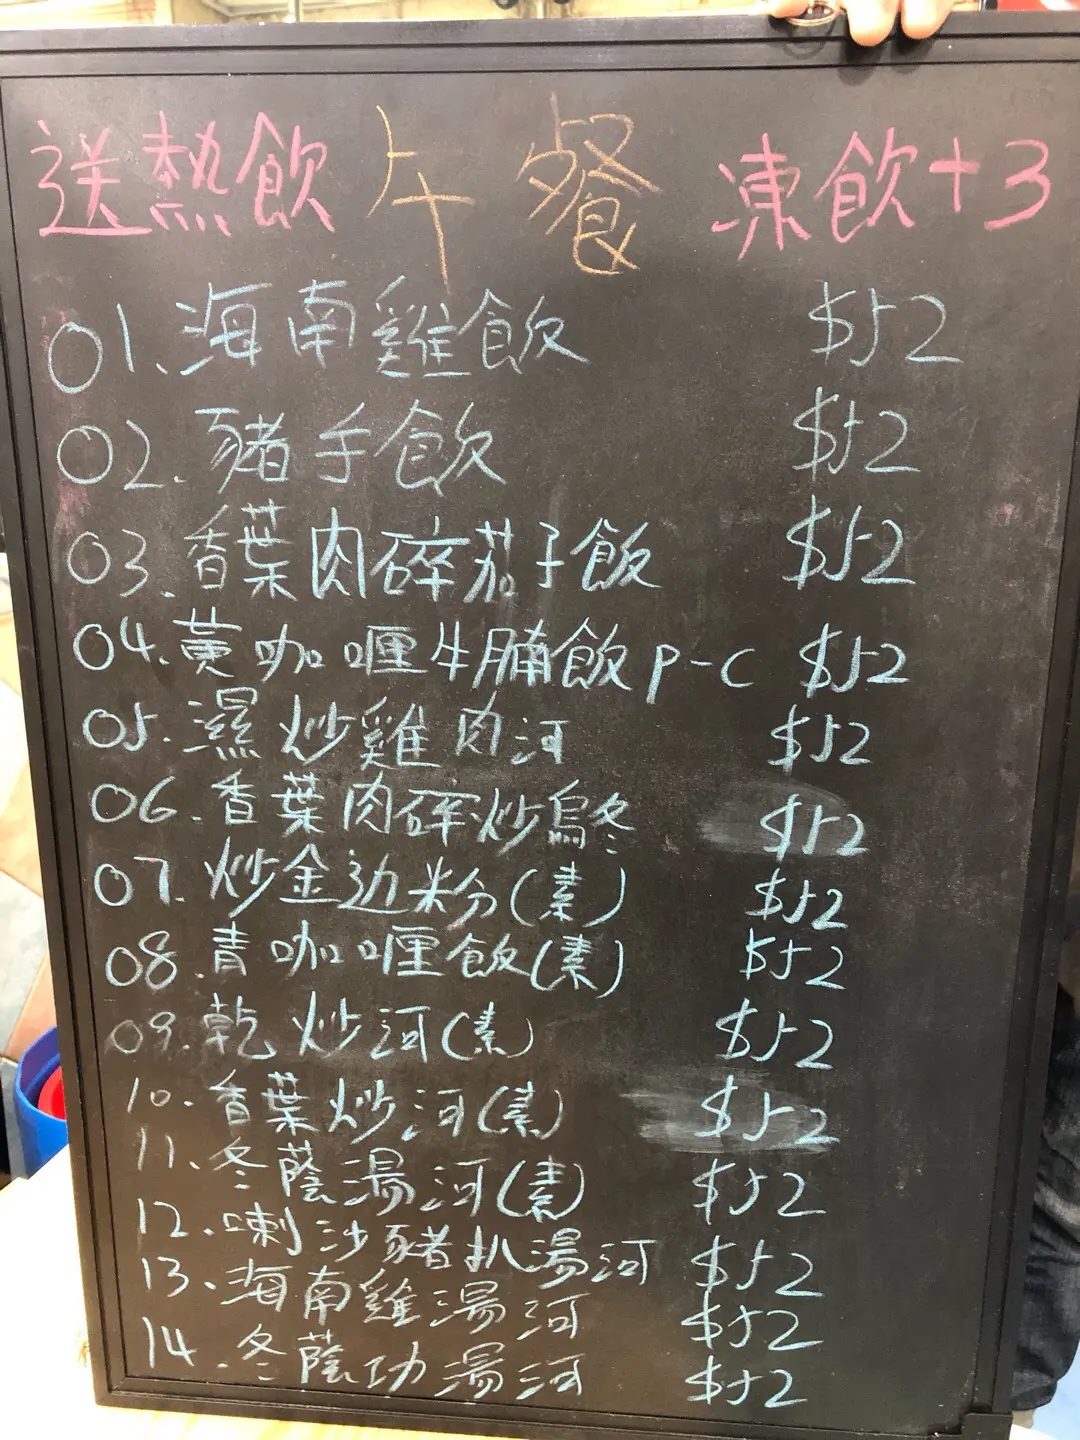 送熱飲 午餐 凍飲+3
01.海南雞飯 $52
02.豬手飯 $52
03.香葉肉碎茄子飯 $52
04.黃咖喱牛腩飯 P-C $52
05.濕炒雞肉河 $52
06.香葉肉碎炒烏冬 $52
07.炒金边粉(素) $52
08.青咖喱飯(素) $52
09.乾炒河(素) $52
10.香葉炒河(素) $52
11.冬蔭湯河(素) $52
12.喇沙豬扒湯河 $52
13.海南雞湯河 $52
14.冬蔭功湯河 $52